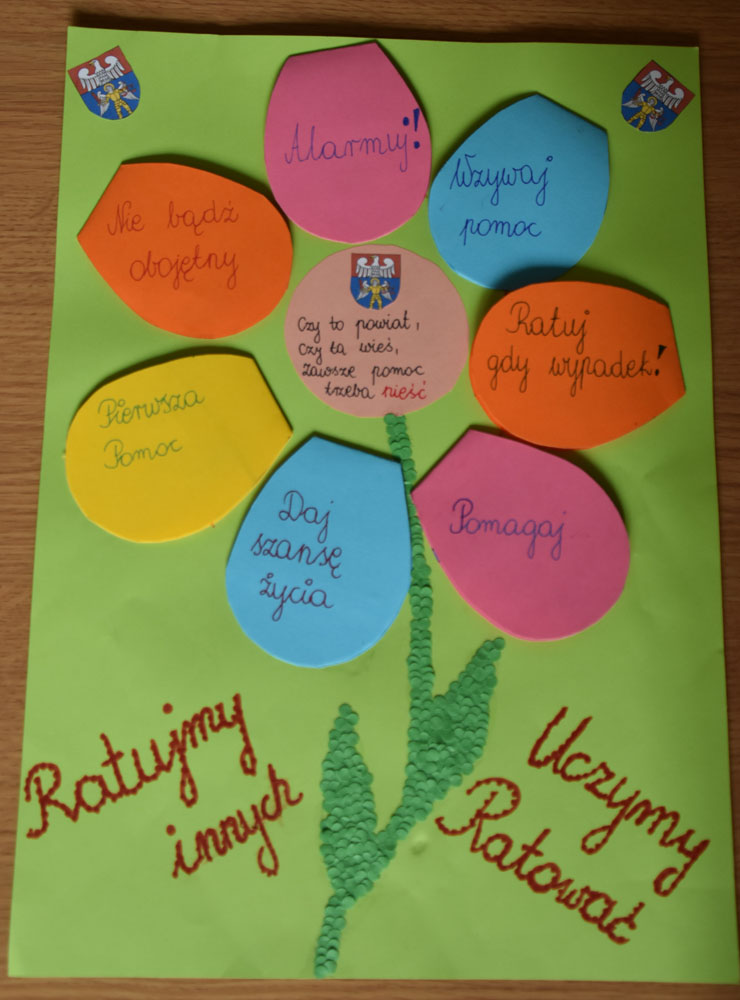 Alarmuj!
Wzywaj
pomoc
Nie bądź
obojętny
Czy to powiat,
czy ta wieś,
zawsze pomoc
trzeba nieść
Ratuj
gdy wypadek!
Pierwsza
Pomoc
Daj
szansę
życia
Pomagaj
Ratujmy
innych
Uczymy
Ratować